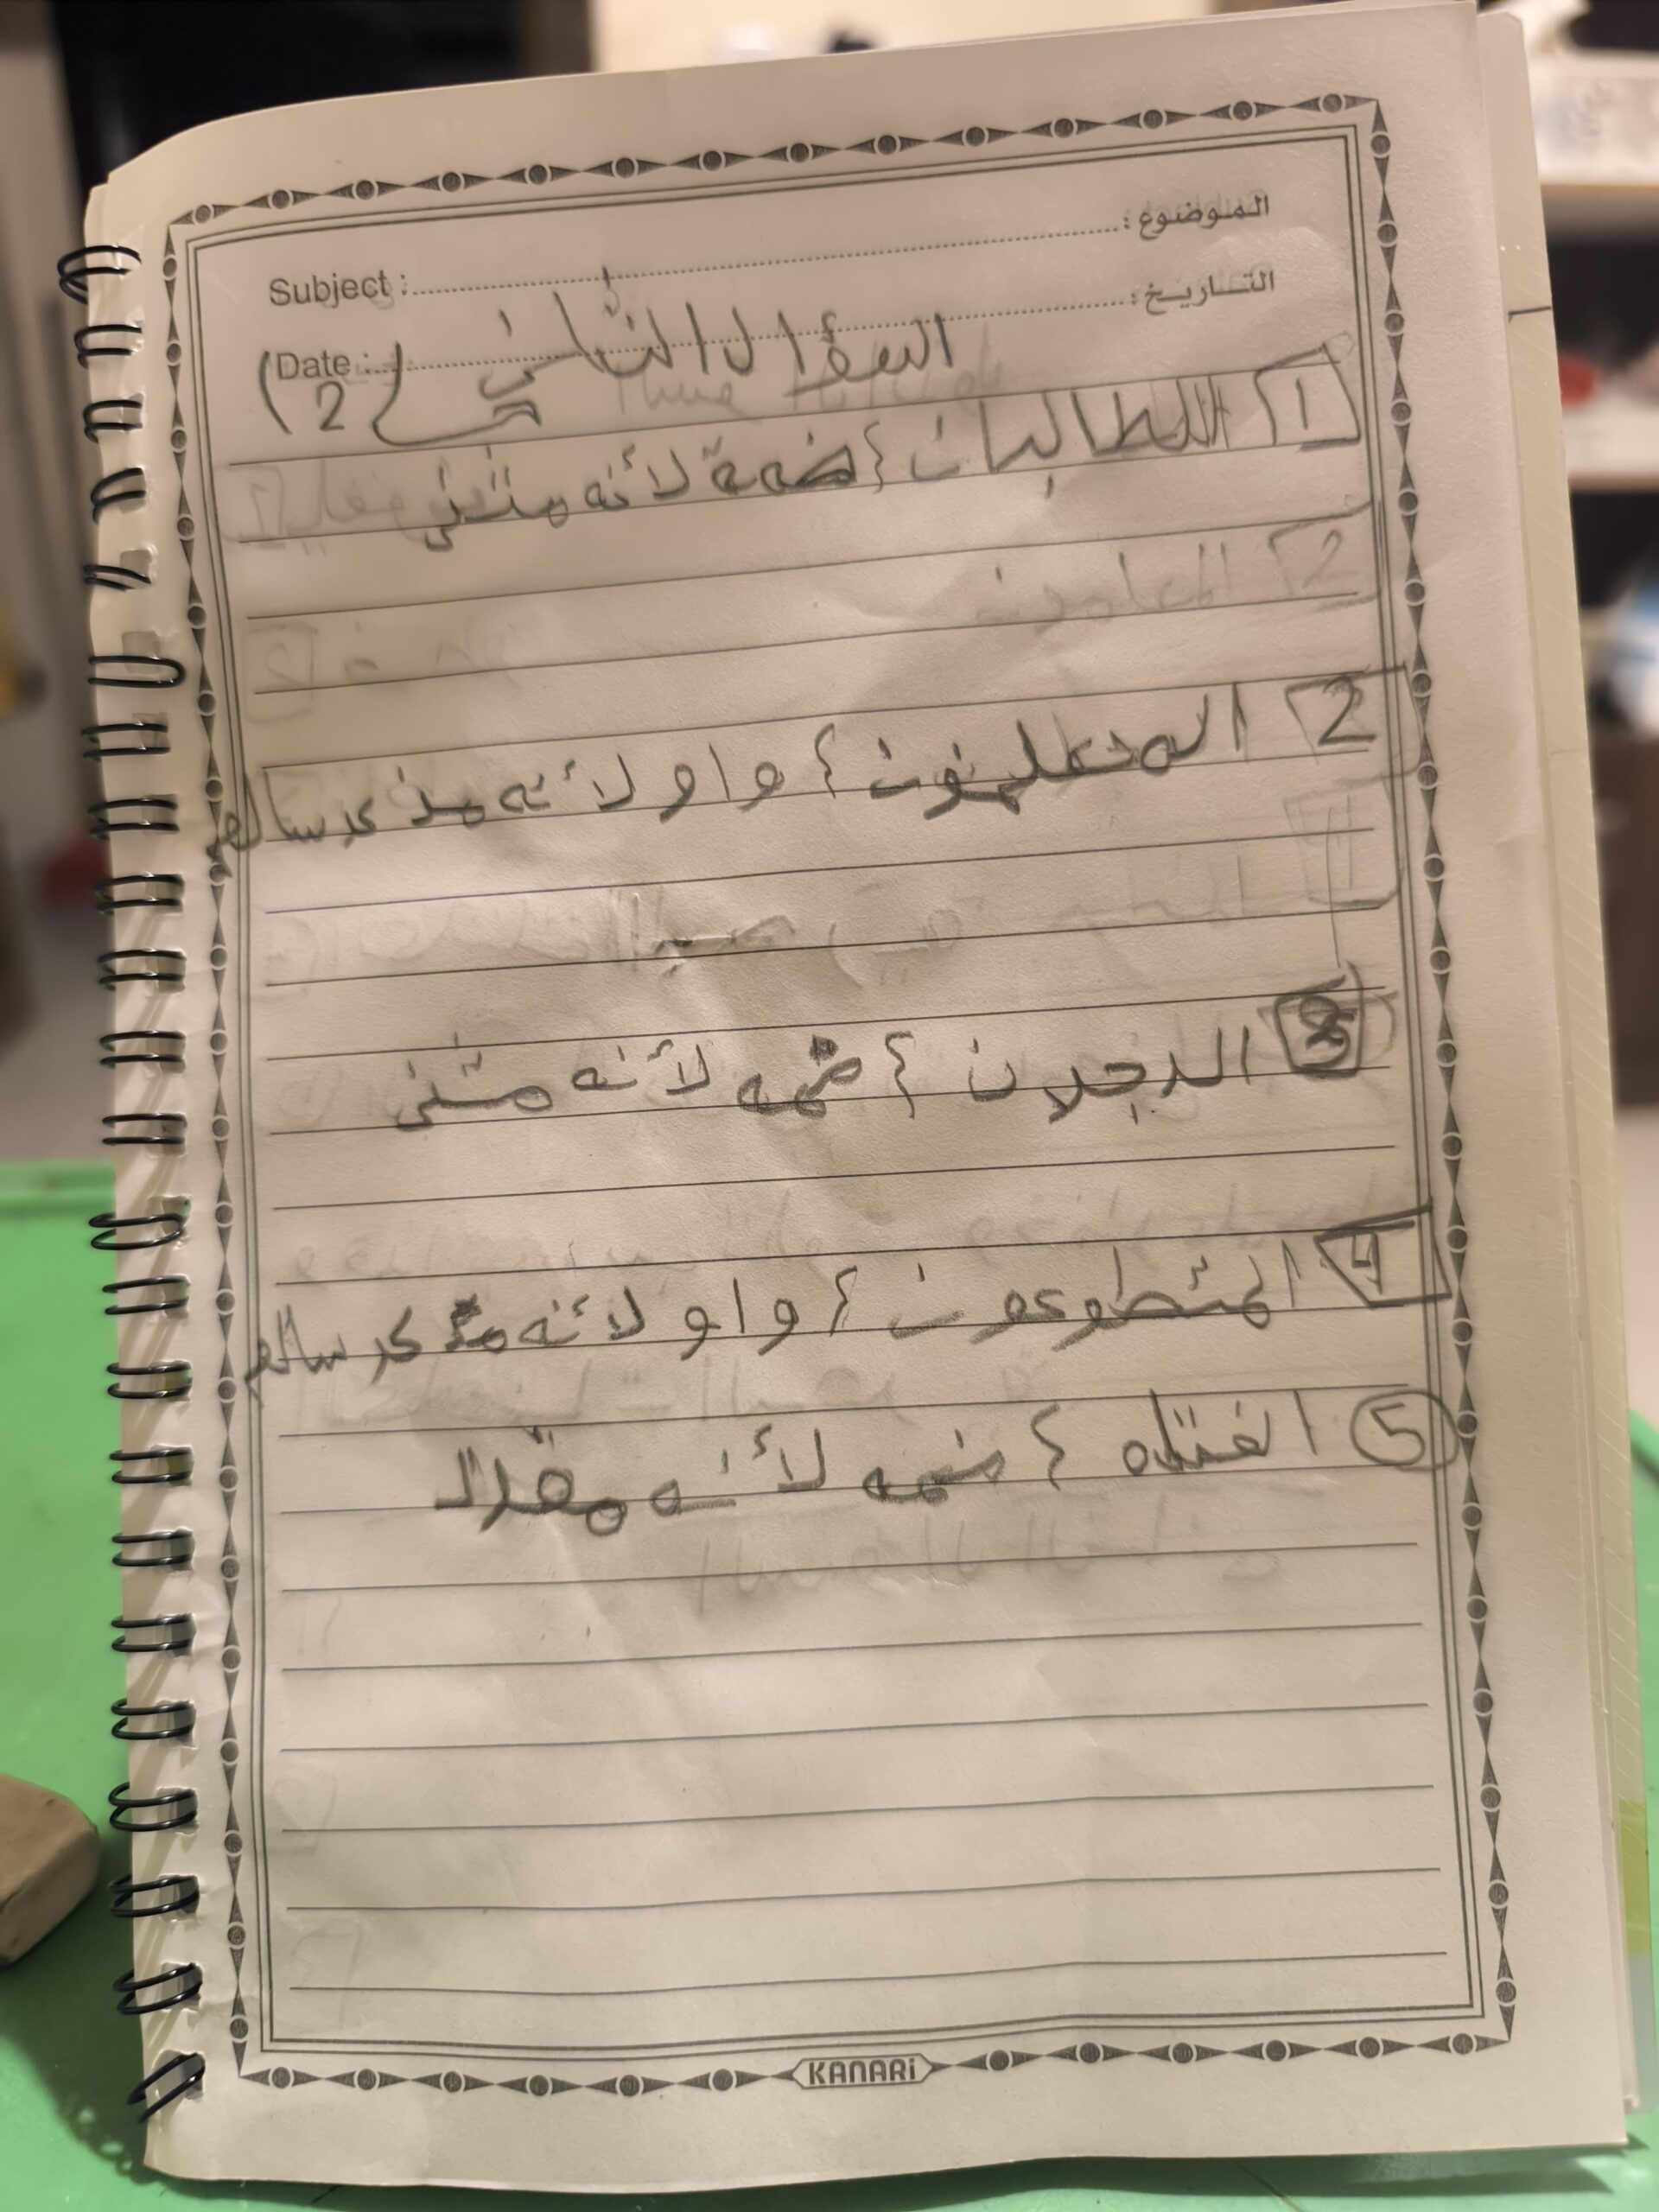 الموضوع :
Subject :
التاريخ :
Date :
السؤال الثاني (2)
1 الطالبان } ضمة لأنه مثنى
2 المعلمون
2 المعلمون } واو لأنه مذكر سالم
3 الرجلان } ضمه لأنه مثنى
4 المتطوعون } واو لأنه مذكر سالم
5 الفتاه } ضمه لأنه مفرد
KANARi